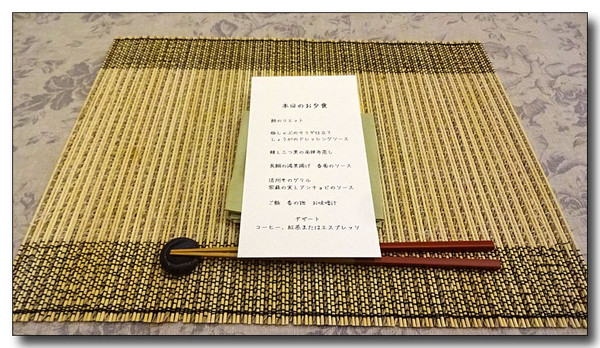 本日のお夕食
鯖のリエット
豚しゃぶのサラダ仕立て
しょうがのドレッシングソース
鯛と三つ葉の南禅寺蒸し
春菊のソース
信州牛のグリル
アンチョビのソース
ご飯 香の物 お味噌汁
デザート
コーヒー、紅茶またはエスプレッソ